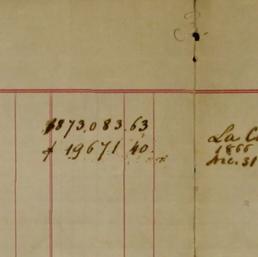 $873,083.63
$19671 40
La
1866
Dec. 31